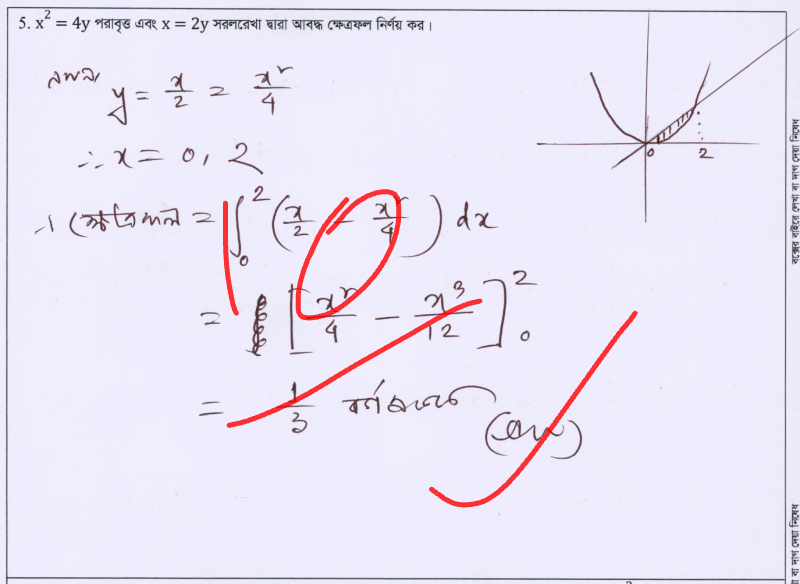 5. x² = 4y পরাবৃত্ত এবং x = 2y সরলরেখা দ্বারা আবদ্ধ ক্ষেত্রফল নির্ণয় কর।
y = x/2 = x²/4
∴ x = 0, 2
∴ ক্ষেত্রফল = ∫₀² (x/2 − x²/4) dx
= [x²/4 − x³/12]₀²
= 1/3 বর্গ একক
(Ans)
0 2
বক্সের বাইরে লেখা বা দাগ দেয়া নিষেধ
বা দাগ দেয়া নিষেধ